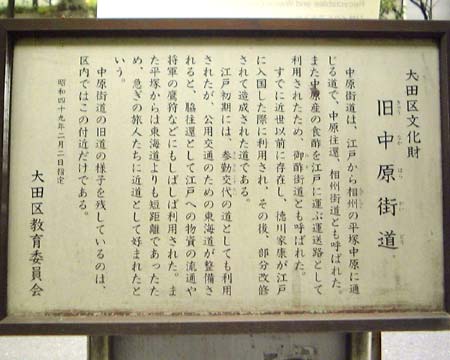 大田区文化財
旧中原街道
きゅう なか はら かい どう
中原街道は、江戸から相州の平塚中原に通
じる道で、中原往還、相州街道とも呼ばれた。
また中原産の食酢を江戸に運ぶ運送路として
利用されたため、御酢街道とも呼ばれた。
すでに近世以前に存在し、徳川家康が江戸
に入国した際に利用され、その後、部分改修
されて造成された道である。
江戸初期には、参勤交代の道としても利用
されたが、公用交通のための東海道が整備さ
れると、脇往還として江戸への物資の流通や
将軍の鷹狩などにもしばしば利用された。ま
た平塚からは東海道よりも短距離であったた
め、急ぎの旅人たちに近道として好まれたと
いう。
中原街道の旧道の様子を残しているのは、
区内ではこの付近だけである。
昭和四十九年二月二日指定
大田区教育委員会